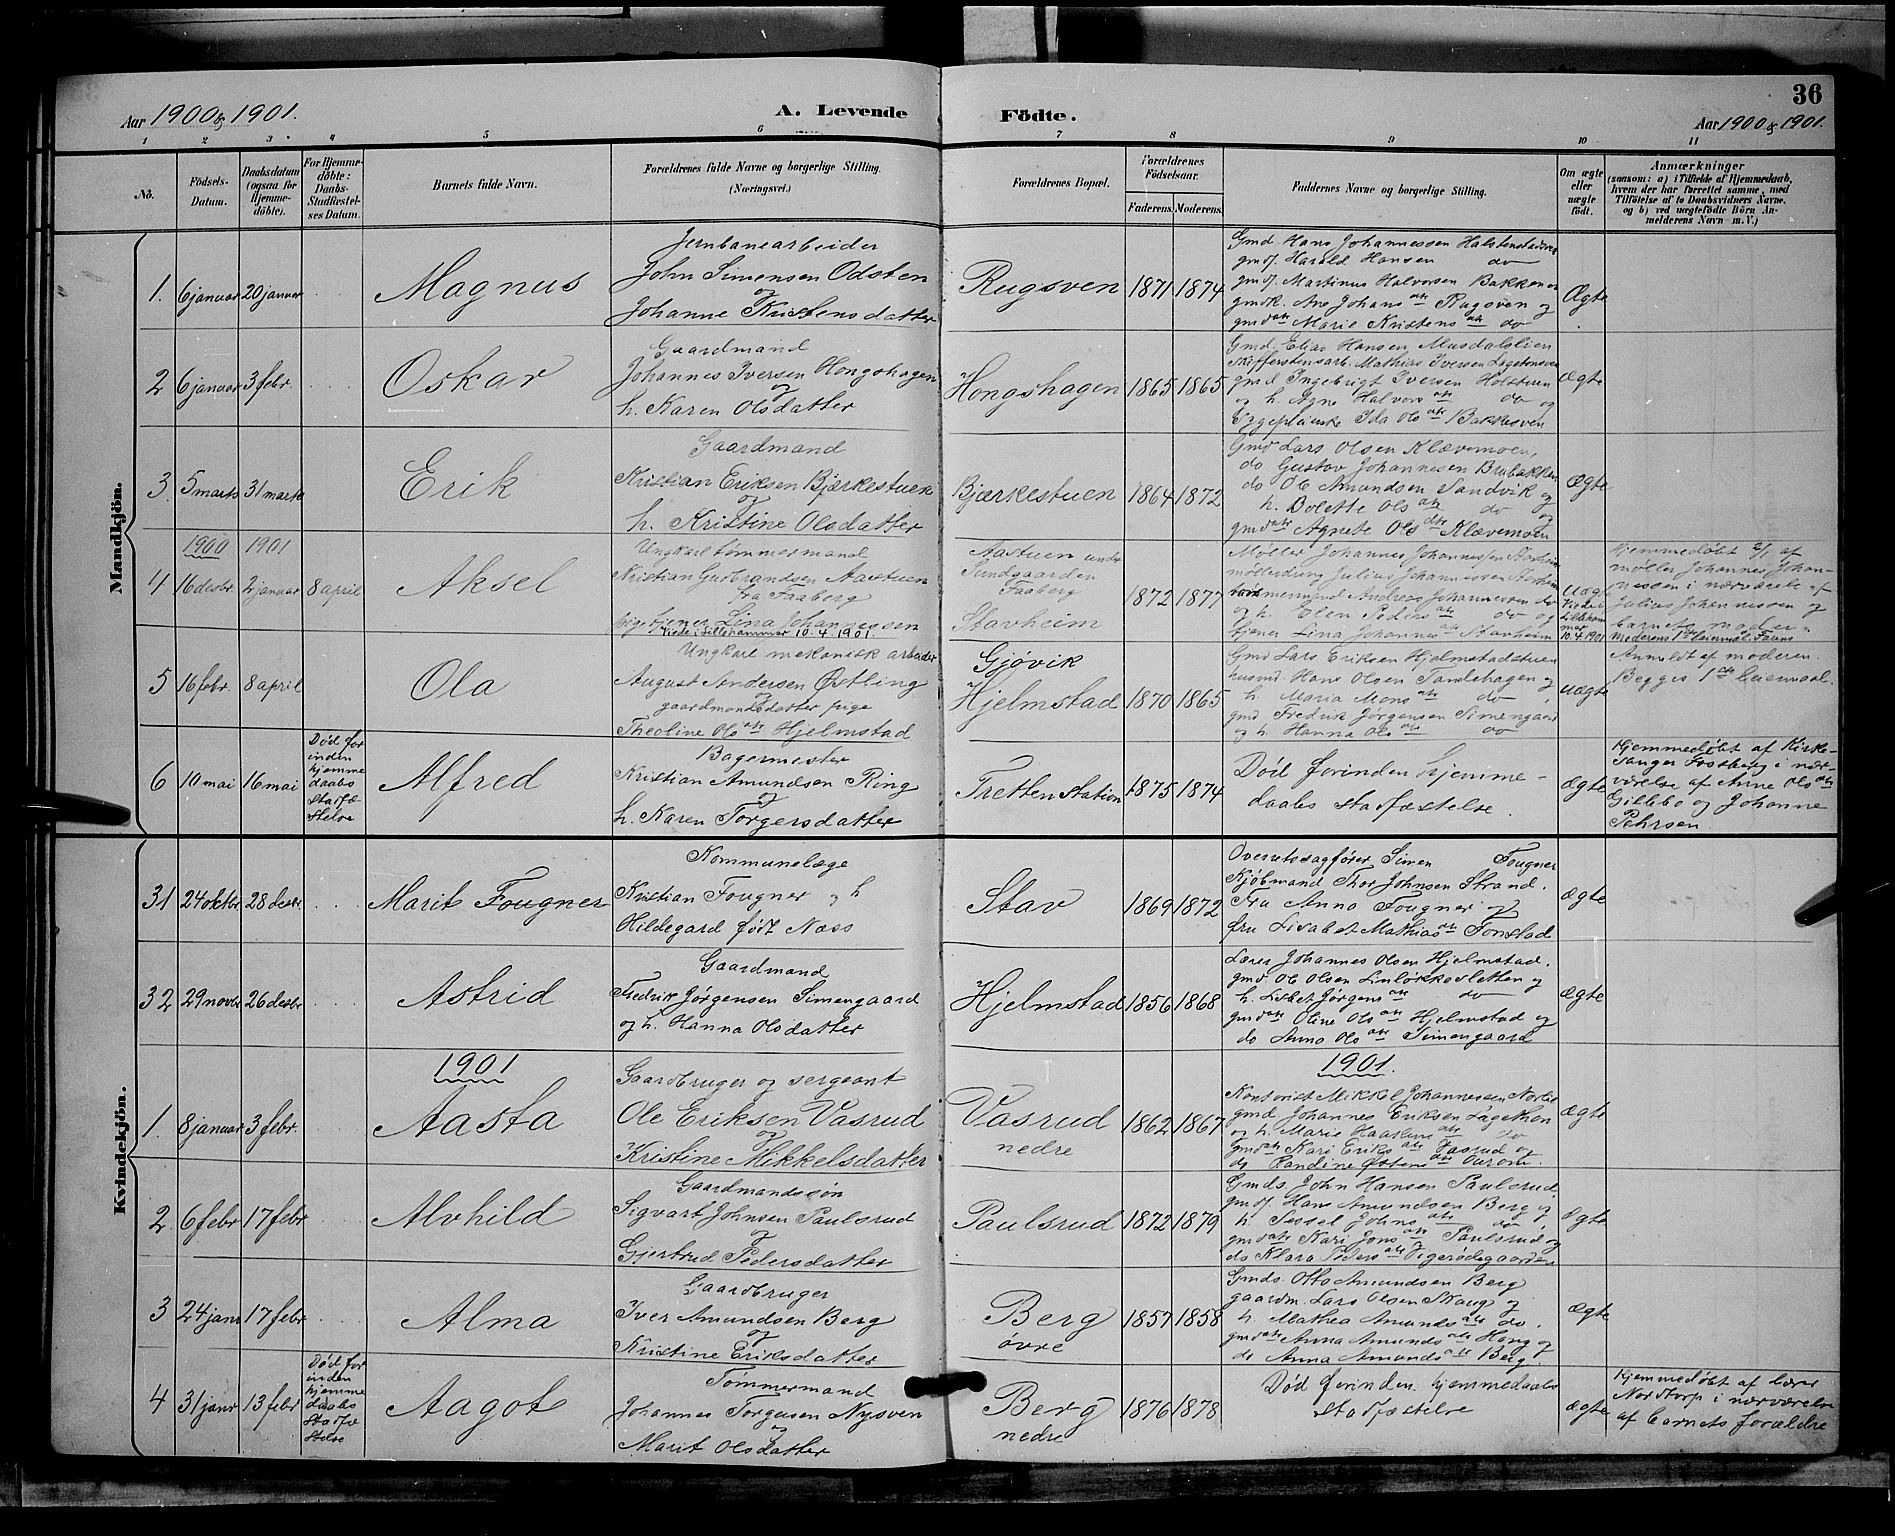 36
Aar 1900 & 1901.
A. Levende
Födte.
Aar 1900 & 1901.
1 2 3 4 5 6 7 8 9 10 11
No.
Födsels-
Datum.
Daabsdatum
(ogsaa for
Hjemme-
döbte).
For Hjemme-
döbte:
Daabs-
Stadfæstel-
ses Datum.
Barnets fulde Navn.
Forældrenes fulde Navne og borgerlige Stilling.
(Næringsvei.)
Forældrenes Bopæl.
Forældrenes
Födselsaar.
Faderens. Moderens.
Faddernes Navne og borgerlige Stilling.
Om ægte
eller
uægte
födt.
Anmærkninger
(saasom: a) i Tilfælde af Hjemmedaab,
hvem der har forrettet samme, med
Tilföielse af to Daabsvidners Navne,
og b) ved uægtefödte Börn An-
melderens Navn m. V.)
Mandkjön.
1. 6 januar 20 januar
Magnus
Jernbanearbeider
John Simensen Odsten
og
Johanne Kristensdatter
Rugsven
1871 1874
Gmd. Hans Johannessen
gmds. Harald Hansen do
gmds. Martinus Halvorsen Bakken og
gmdk. Ane Johans dtr Rugsven og
gmd dtr Marie Kristens dtr do
Ægte
2 6 januar 3 febr.
Oskar
Gaardmand
Johannes Iversen Hongshagen
og
h. Karen Olsdatter
Hongshagen
1865 1865
Gmd. Elias Hansen Musdalslien
Skifferstensarb. Mathias Iversen
gmd Ingebrigt Iversen Holstuen
og h. Agne Halvors dtr do og
Sygepleierske Ida Ols dtr Bakkesven
Ægte
3. 5 marts 31 marts
Erik
Gaardmand
Kristian Eriksen Bjærkestuen
og
h. Kristine Olsdatter
Bjærkestuen
1864 1872
Gmd Lars Olsen Klævemoen,
do Gustav Johannesen Brubakken
do Ole Amundsen Sandvik og
h. Dolette Ols dtr do og
gmd dtr Agnete Ols dtr Klævemoen
Ægte
1900 1901
4 16 desbr. 2 januar 8 april
Aksel
Ungkarl tømmermand
Kristian Gudbrandsen Aastuen
fra Faaberg
pige tjener Lina Johannessen
Viede i Lillehammer 10.4.1901.
Aastuen under
Sundgaarden
Faaberg
Stavheim
1872 1877
Møller Johannes Johannessen Stavheim
møllerdreng Julius Johannessen Stavheim
Andreas Johannessen do
og h. Elen Peders dtr do og
tjener Lina Johannes dtr Stavheim
Uægte
Viede i
Lilleham
mer
10.4.1901
Hjemmedøbt 2/1 af
møller Johannes Johan-
nessen i nærværelse af
Julius Johannessen og
barnets moder.
Moderens 1ste leiermaal. Farens
5 16 febr. 8 april
Ola
Ungkarl mekanisk arbeider
August Andersen Østling
og
gaardmandsdatter pige
Theoline Ols dtr Hjelmstad
Gjøvik
Hjelmstad
1870 1865
Gmd Lars Eriksen Hjelmstadstuen
husmd. Hans Olsen Tandehagen og
h. Maria Mons dtr do
gmd Fredrik Jørgensen Simengaard
og h. Hanna Ols dtr do
uægte
Anmeldt af moderen.
Begges 1ste leiermaal.
6 10 mai 16 mai
Død for
inden
hjemme
daabs
stadfæ
stelse
Alfred
Bagermester
Kristian Amundsen Ring
og
h. Karen Torgersdatter
Tretten station
1875 1874
Død forinden hjemme-
daabs stadfæstelse.
ægte
Hjemmedøbt af Kirke-
sanger Fostberg i nær-
værelse af Anne Ols dtr
Gillebo og Johanne
Pehrsen
Kvindekjön.
31 24 oktbr. 28 desbr.
Marit Fougner
Kommunelæge
Kristian Fougner og h
Hildegard født Næss
Stav
1869 1872
Overretssagfører Simen Fougner
Kjøbmand Thor Johnsen Strand.
Fra Anna Fougner og
fru Lisabet Mathias dtr Formstad
ægte
32 29 novbr 26 desbr
Astrid
Gaardmand
Fredrik Jørgensen Simengaard
og h. Hanna Olsdatter
Hjelmstad
1856 1868
Lærer Johannes Olsen Hjelmstad.
gmd. Ole Olsen Linløkkesletten og
h. Lisbet Jørgens dtr do
gmd dtr Oline Ols dtr Hjelmstad og
do Anna Ols dtr Simengaard
Ægte
1901
1901
1. 8 januar 3 febr.
Aasta
Gaardbruger og sergeant
Ole Eriksen Vasrud
og
Kristine Mikkelsdatter
Vasrud
nedre
1862 1867
Kontorist Mikkel Johannessen Nordli
gmd. Johannes Eriksen
og h. Marie dtr do
gmd dtr Kari Eriks dtr Vasrud og
do Randine dtr
Ægte
2 6 febr 17 febr
Alvhild
Gaardmandssøn
Sigvart Johnsen Paulsrud
og
Gjertrud Pedersdatter
Paulsrud
1872 1879
Gmds. John Hansen Paulsrud,
gmds. Hans Amundsen Berg og
h. Sessel Johns dtr do,
gmd dtr Kari Jons dtr Paulsrud og
do Klara Peders dtr
Ægte
3 24 janr 17 febr
Alma
Gaardbruger
Iver Amundsen Berg
og
Kristine Eriksdatter
Berg
øvre
1857 1858
Gmds. Otto Amundsen Berg
gaardm. Lars Olsen Skaug og
h. Mathea Amunds dtr do,
gmd dtr Anna Amunds dtr Hong og
do Anna Amunds dtr Berg
ægte
4 31 janr 13 febr
Død for
inden
hjemme
daabs
stadfæ
stelse
Aagot
Tømmermand
Johannes Torgersen Nysven
og
Marit Olsdatter
Berg
nedre
1876 1878
Død forinden hjemmedaabs
stadfæstelse
ægte
Hjemmedøbt af lærer
Nordtorp i nærværelse
af barnets forældre